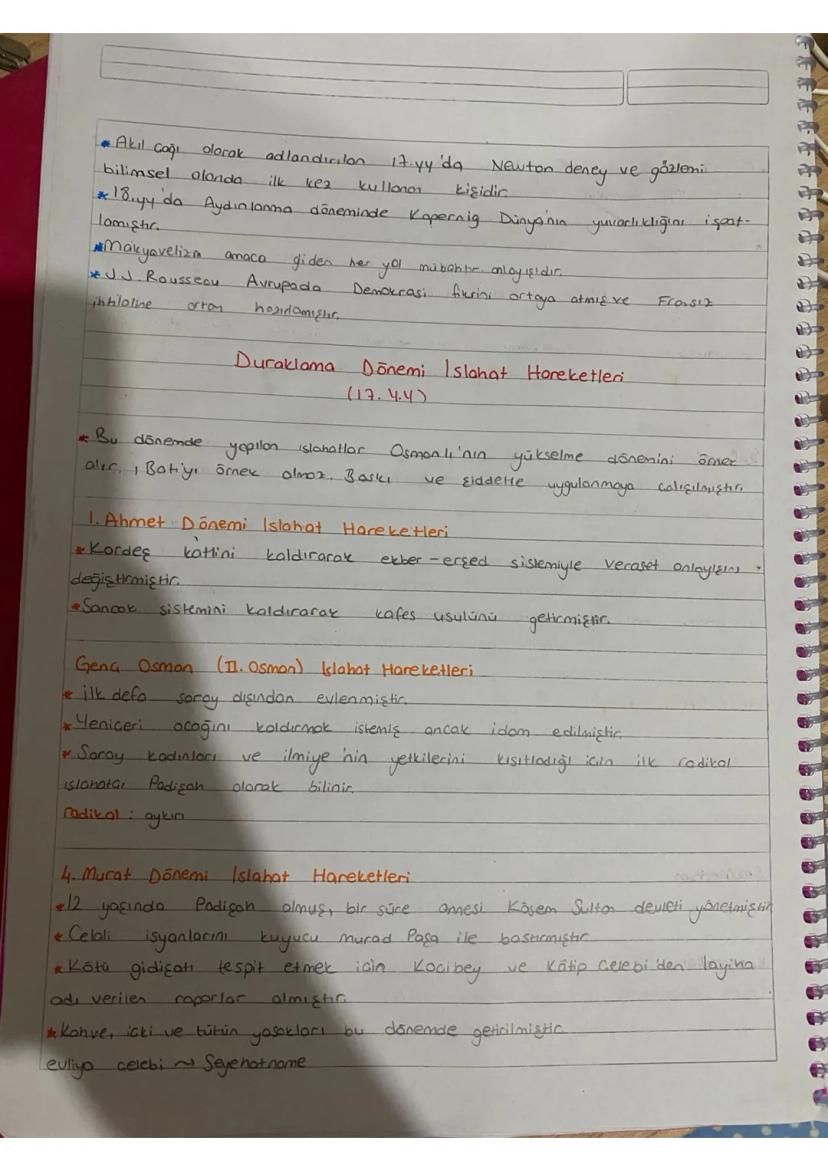 * Akıl çağı olarak adlandırılan 17.yy'da Newton deney ve gözlemi
bilimsel alanda ilk kez kullanan kişidir.
* 18.yy'da Aydınlanma döneminde Kopernig Dünya'nın yuvarlıklığını ispat-
lamıştır.
* Makyavelizm amaca giden her yol mübahtır anlayışıdır.
* J.J. Rousseau Avrupada Demokrasi fikrini ortaya atmış ve Fransız
ihtilaline ortam hazırlamıştır.
Duraklama Dönemi Islahat Hareketleri
(17.y.y)
* Bu dönemde yapılan ıslahatlar Osmanlı'nın yükselme dönemini örnek
alır, Batı'yı örnek almaz. Baskı ve şiddetle uygulanmaya çalışılmıştır.
1. Ahmet Dönemi Islahat Hareketleri
* Kardeş katlini kaldırarak ekber-erşed sistemiyle veraset anlayışını
değiştirmiştir.
* Sancak sistemini kaldırarak kafes usulünü getirmiştir.
Genç Osman (II. Osman) Islahat Hareketleri
* ilk defa saray dışından evlenmiştir.
* Yeniçeri ocağını kaldırmak istemiş ancak idam edilmiştir.
* Saray kadınları ve ilmiye'nin yetkilerini kısıtladığı için ilk radikal
ıslahatçı Padişah olarak bilinir.
radikal : aykırı
4. Murat Dönemi Islahat Hareketleri
* 12 yaşında Padişah olmuş, bir süre annesi Kösem Sultan devleti yönetmiştir
* Celali isyanlarını kuyucu murad Paşa ile bastırmıştır
* Kötü gidişatı tespit etmek için Kocibey ve Katip Çelebi'den layiha
adı verilen raporlar almıştır.
* Kahve, içki ve tütün yasakları bu dönemde getirilmiştir.
evliya çelebi → Seyehatname